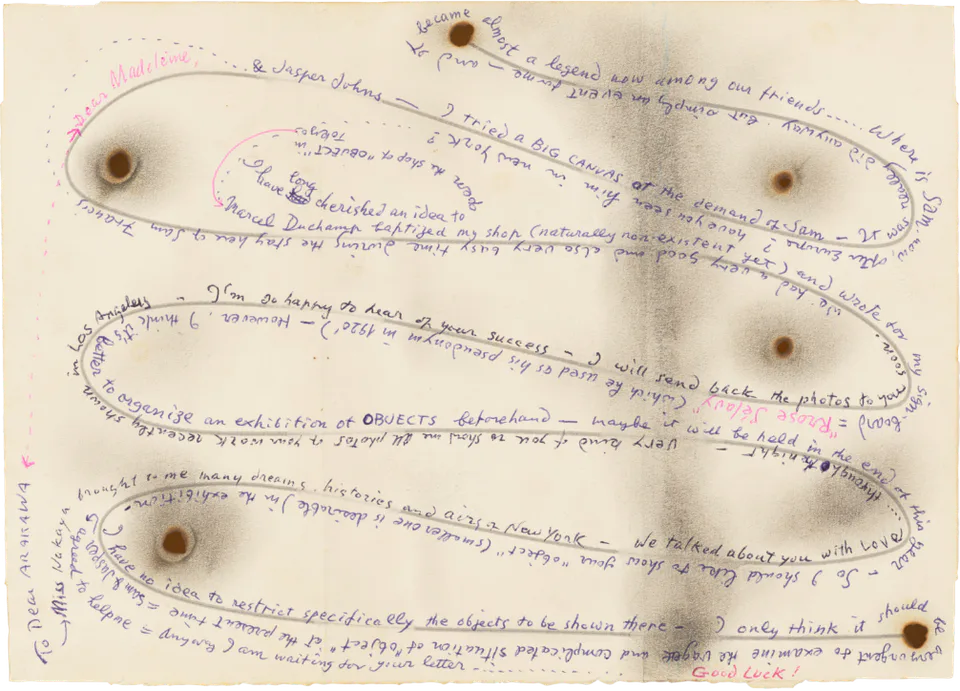 Dear Madeleine,
To Dear ARAKAWA
Miss Nakaya
brought to me many dreams, histories and airs of New York — We talked about you with LOVE
throughout the night —
very kind of you to show me all photos of your work recently shown
in Los Angeles
— I'm so happy to hear of your success — I will send back the photos to you
soon.
had a very good and also very busy time during the stay here of Sam Francis
& Jasper Johns — I tried a BIG CANVAS at the demand of Sam — It
really
did anyway. but simply an event for me — and
became almost a legend now among our friends..... Where is
Sam now,
after Europe? have you seen him in New York?
I have long cherished an idea to
open the shop of "OBJECT" in
Tokyo.
Marcel Duchamp baptized my shop (naturally non-existent yet) and wrote for
my sign-board =
"Rrose Sélavy"
(which he used as his pseudonym in 1920) — However, I think it's
better to organize an exhibition of OBJECTS beforehand — maybe it will be held in the end
of this year —
So I should like to show your "object" (smaller one is desirable) in the exhibition.
I have no idea to restrict specifically the objects to be shown there — I only think it should
be very urgent to examine the vague and complicated situation of "object" at the present time =
Sam & Jasper agreed to help me =
anyway I am waiting for your letter
Good Luck!